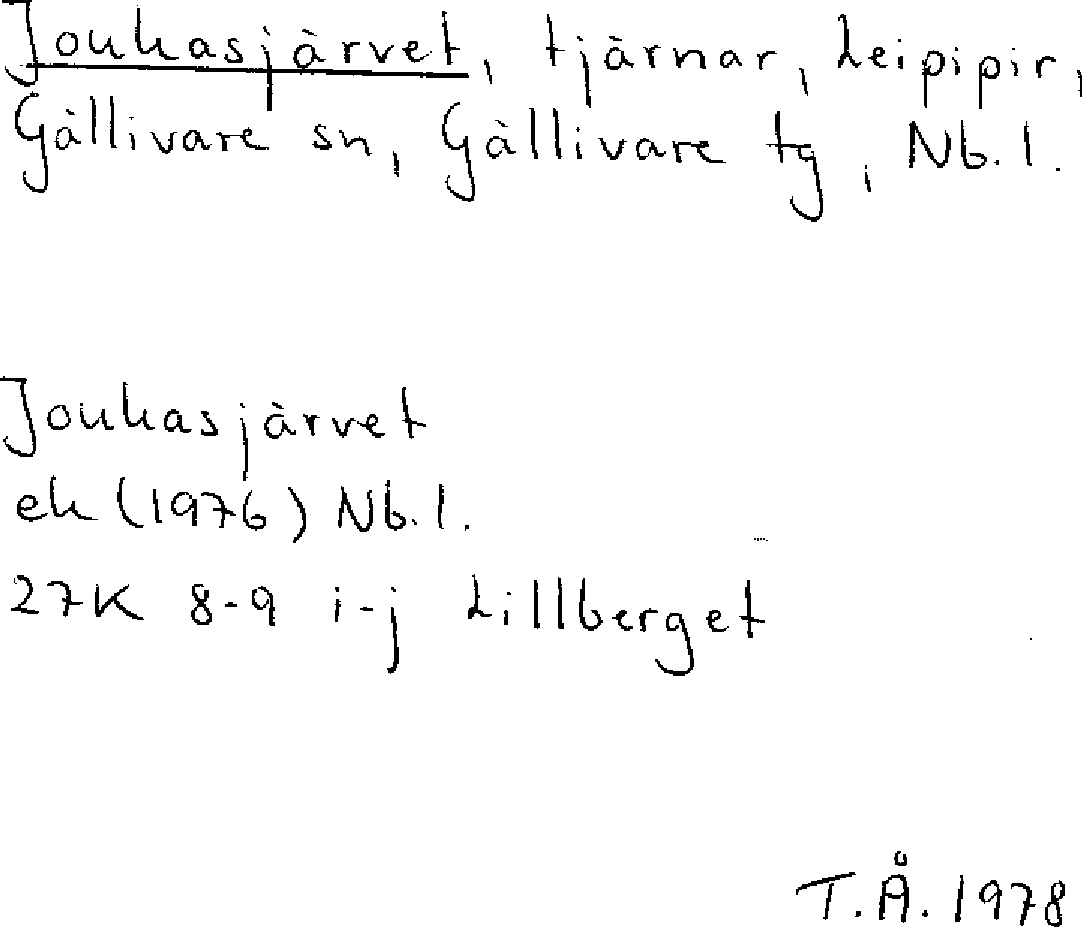 Joukasjärvet, tjärnar, Leipipir,
Gällivare sn, Gällivare tg, Nb. l.
Joukasjärvet
ek (1976) Nb. l.
27K 8-9 i-j Lillberget
T.Å. 1978